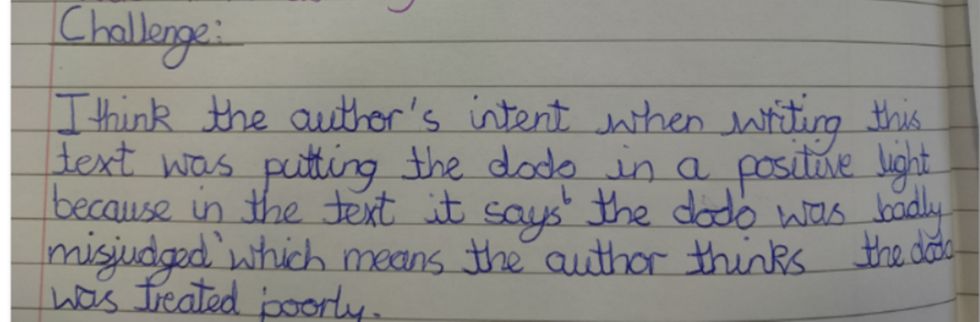 Challenge:
I think the author's intent when writing this
text was putting the dodo in a positive light
because in the text it says' the dodo was badly
misjudged' which means the author thinks the dodo
was treated poorly.